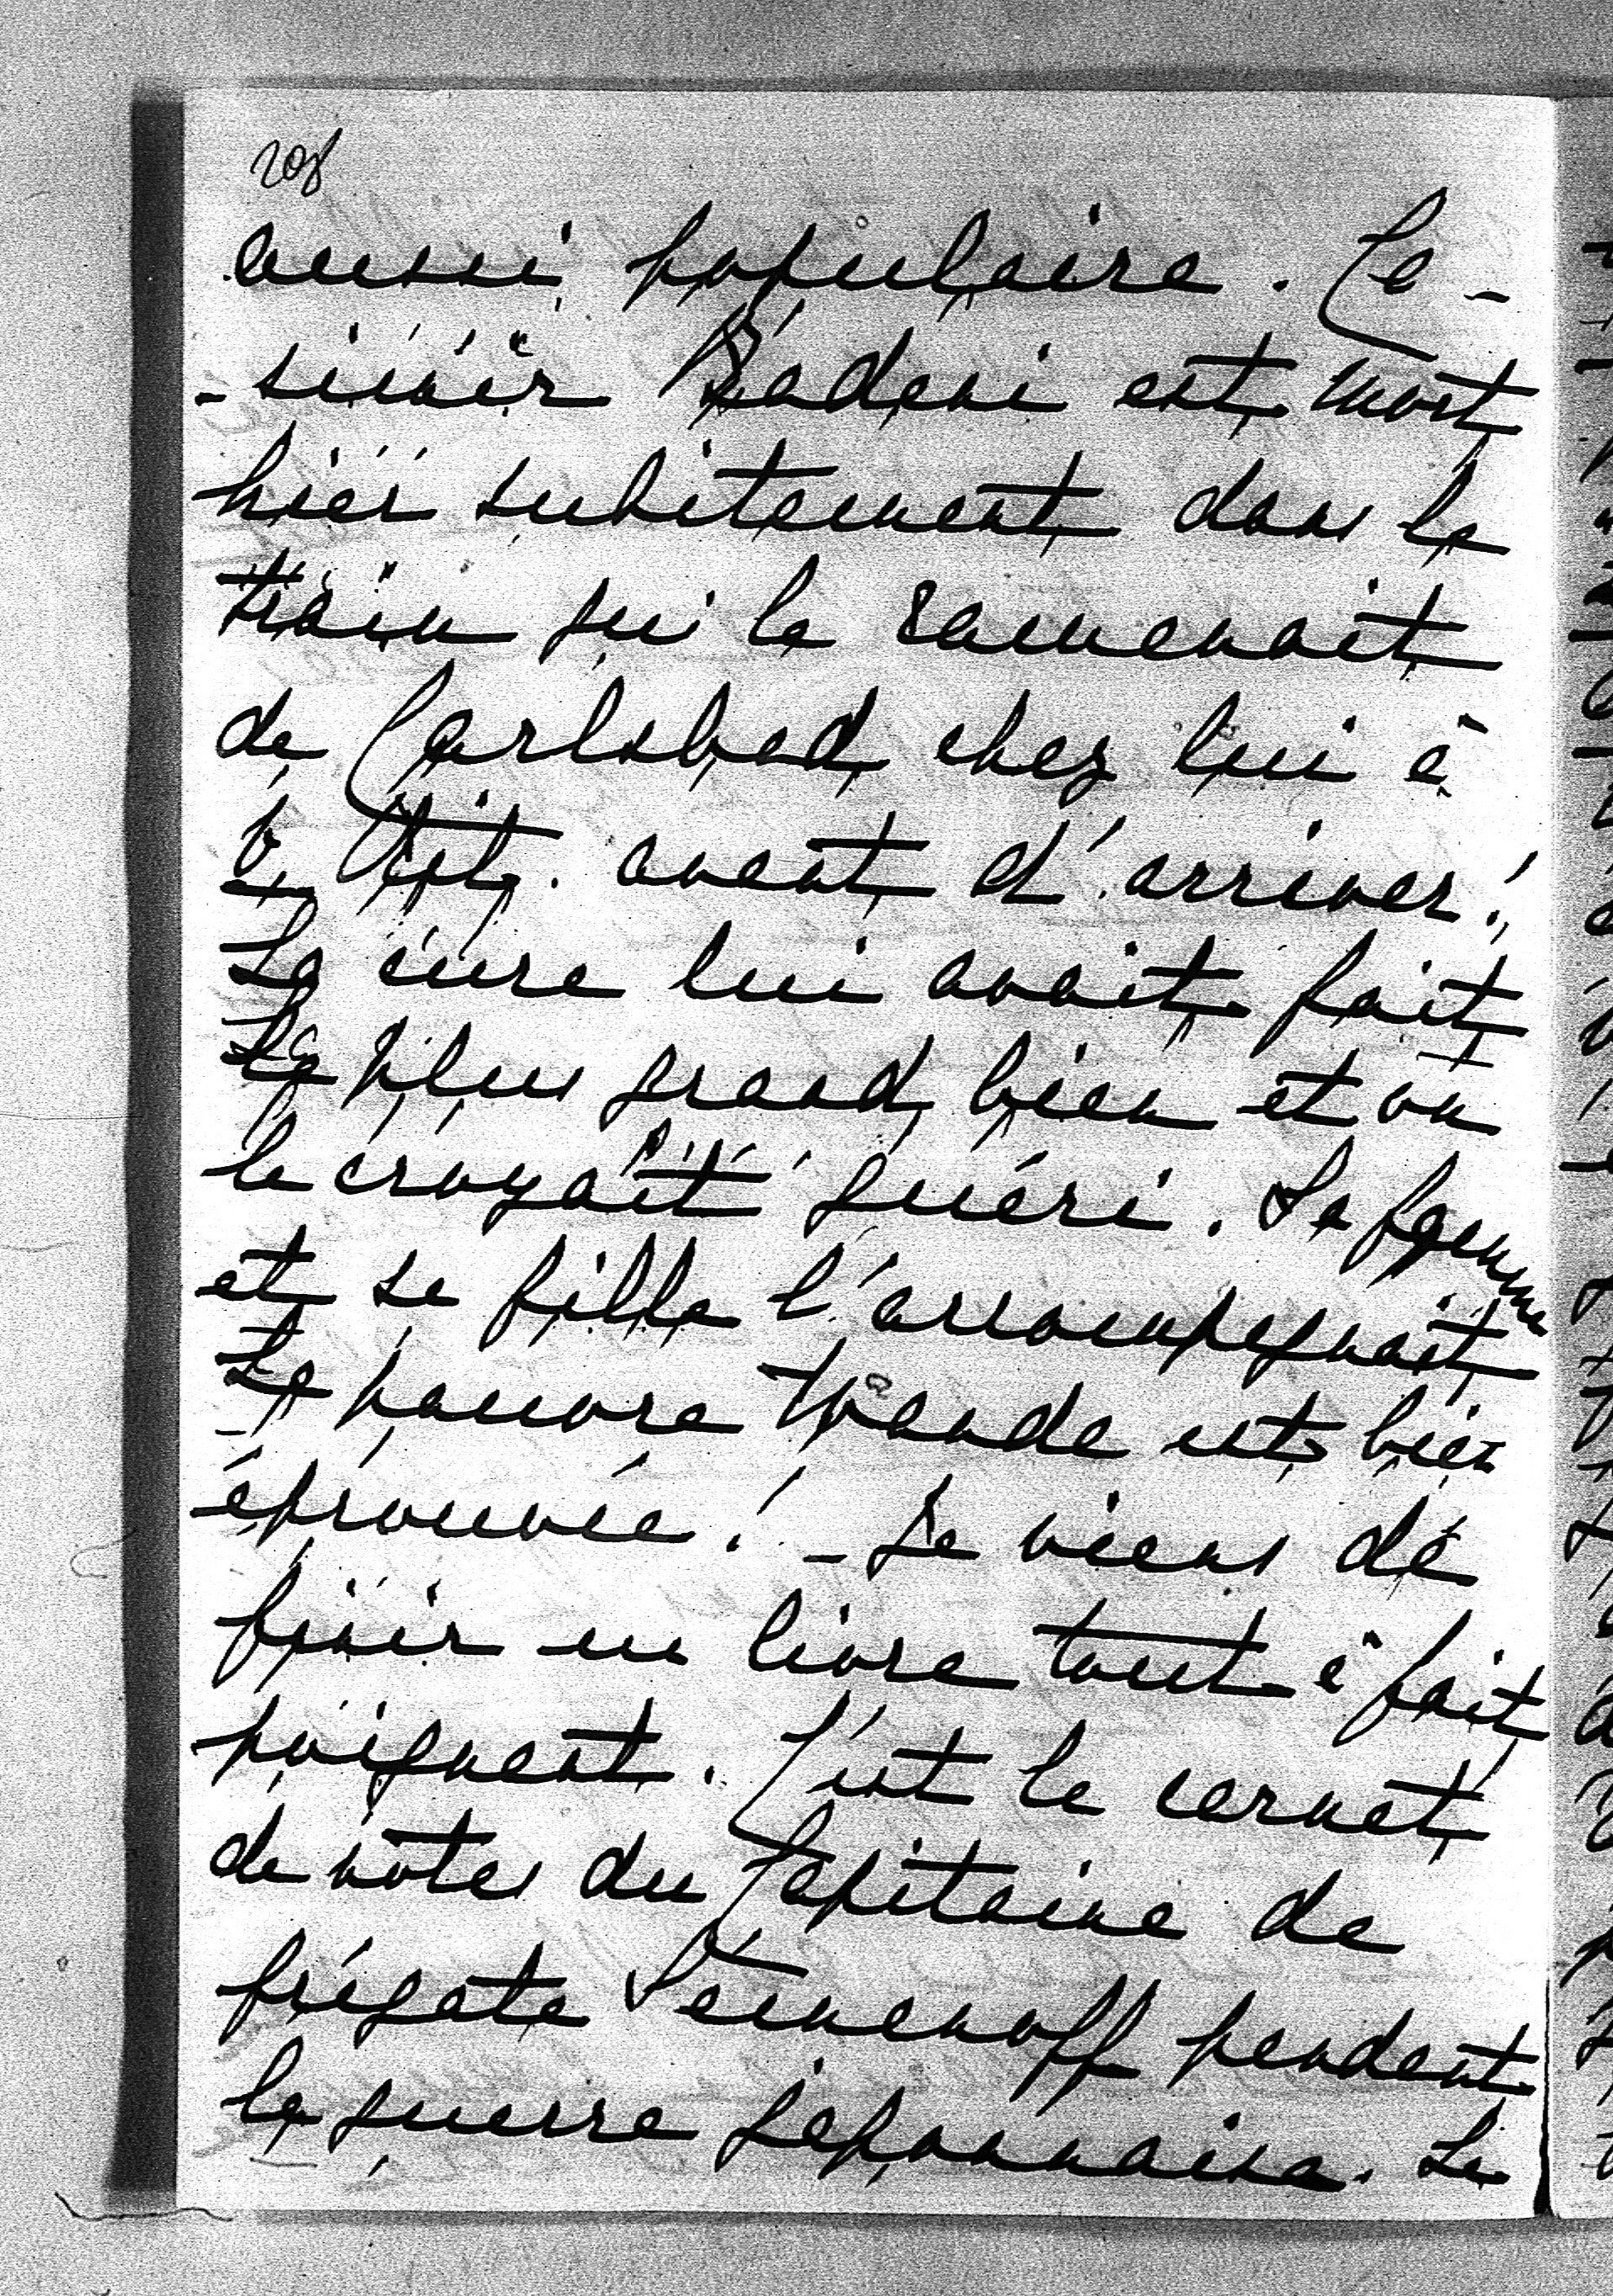 208
aussi populaire. Ca-
-simir Badeni est mort
hier subitement dans le
train qui le ramenait
de Carlsbad chez lui à
avant d'arriver!
La cure lui avait fait
le plus grand bien et on
le croyait guéri. Sa femme
et sa fille l'accompagnait
La pauvre Wanda est bien
éprouvée! - Je viens de
finir un livre tout à fait
poignant. C'est le carnet
de notes du Capitaine de
frégate Semenoff pendant
la guerre japonnaise. Le